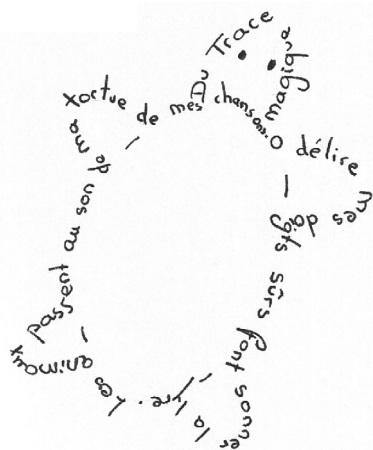 Du Trace magique O délire
mes doigts sûrs font sonner la lyre.
Les animaux passent au son
de ma tortue de mes chansons.